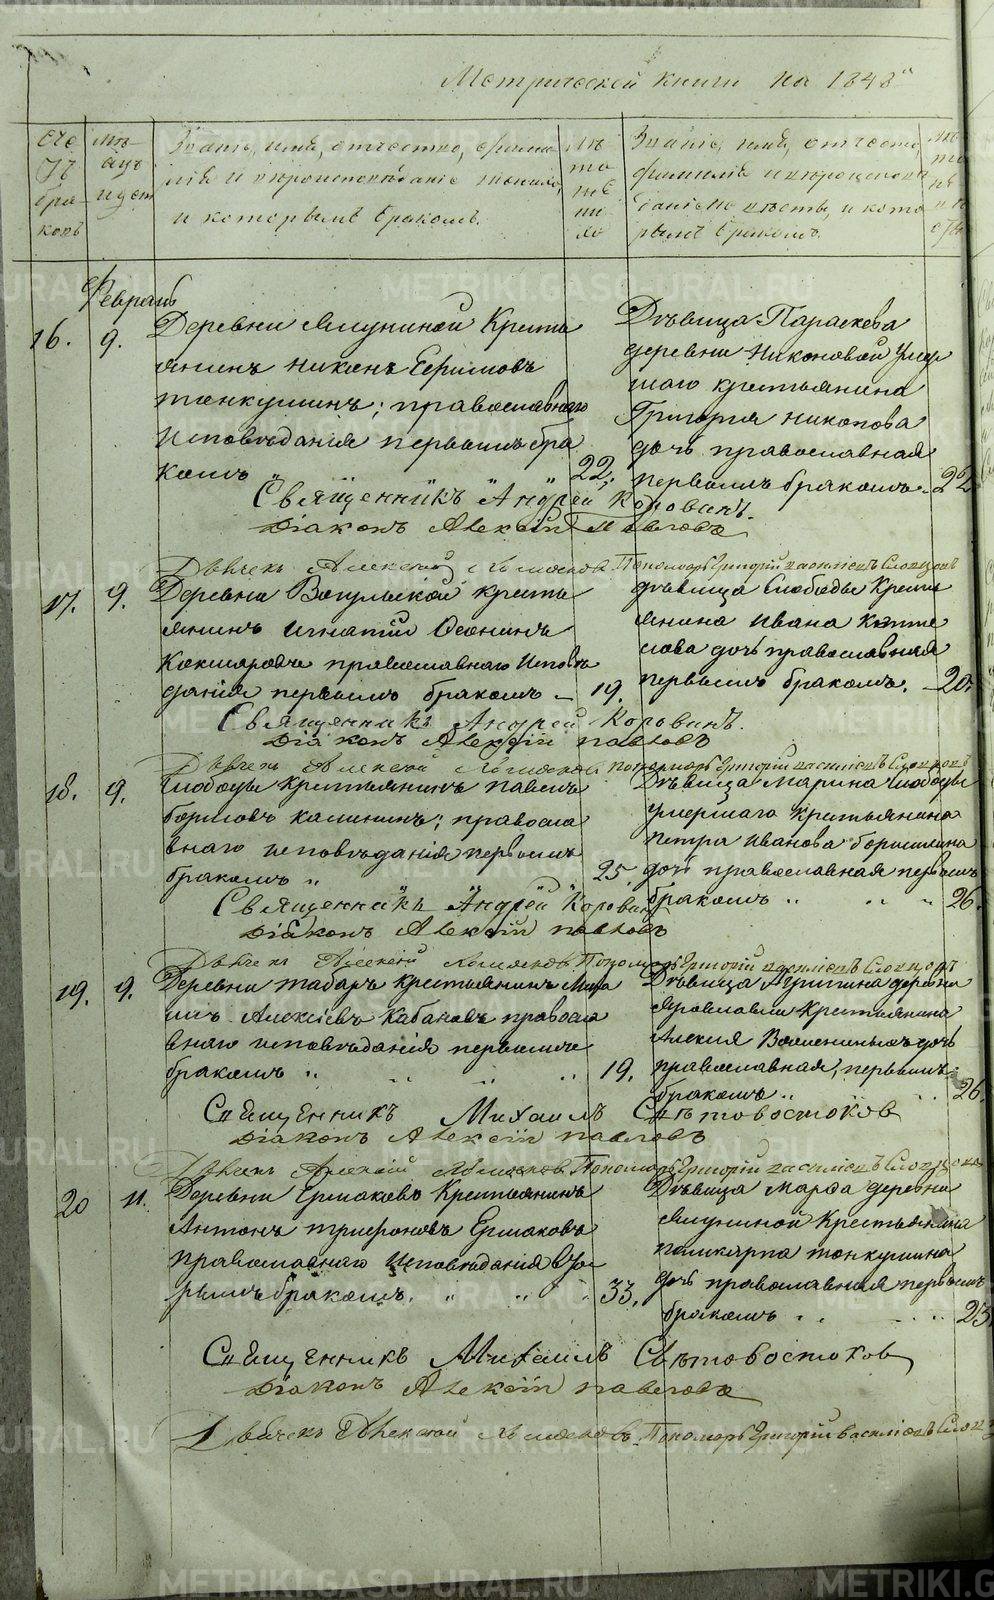 Метрической книги на 1848й
Сче
тъ
бра
ковъ
Мѣ-
яцъ
и дст
Званіе, имя, отчество, фами
лія и вѣроисповѣданіе жениха,
и которымъ бракомъ.
Лѣ
та
же
ни
ха
Званіе, имя, отчество,
фамилія и вѣроисповѣ
даніе невѣсты, и кото
рымъ бракомъ.
Февраль
16.
9.
Деревни Ялуниной Кресть
янинъ Никонъ Ефимовъ
Тонкушинъ; православнаго
исповѣданія первымъ бра
комъ „
22.
Дѣвица Параскева
деревни Никоновой умер
шаго крестьянина
Григорія Никонова
дочь православная
первымъ бракомъ.
22
Священникъ Андрей Коровинъ.
Діаконъ Алексій Павловъ
Дьячекъ Алексѣй Пономарь Григорій Василіевъ Словцовъ
17.
9.
Деревни Вогульской кресть
янинъ Игнатій
Кокшаровъ православнаго исповѣ
данія первымъ бракомъ —
19.
дѣвица Слободы Кресть
янина Ивана
дочь православная
первымъ бракомъ.
20.
Священникъ Андрей Коровинъ.
Діаконъ Алексій Павловъ
Дьячекъ Алексѣй Пономарь Григорій Василіевъ Словцовъ
18.
9.
Слободы Крестьянинъ Павелъ
Борисовъ Калининъ; правосла
внаго исповѣданія первымъ
бракомъ „
25
Дѣвица Марина Слободы
умершаго Крестьянина
Петра Иванова
дочь православная первымъ
бракомъ „ „ „
26.
Священникъ Андрей Коровинъ
Діаконъ Алексій Павловъ
Дьячекъ Алексѣй Пономарь Григорій Василіевъ Словцовъ
19.
9.
Деревни Табаръ Крестьянинъ Миха
илъ Алексіевъ Кабановъ правосла
внаго исповѣданія первымъ
бракомъ „ „ „ „
19.
Дѣвица Агрипина деревни
Крестьянина
Алексія дочь
православная, первымъ
бракомъ „
26.
Священникъ Михаилъ Свѣтовостоковъ
Діаконъ Алексій Павловъ
Дьячекъ Алексѣй Пономарь Григорій Василіевъ Словцовъ
20
11.
Деревни Ермаковъ Крестьянинъ
Антонъ Трифоновъ Ермаковъ
православнаго исповѣданія вто
рымъ бракомъ. „ „ „
33.
Дѣвица Марфа деревни
Ялуниной Крестьянина
Поликарпа Тонкушина
дочь православная первымъ
бракомъ „ „
23.
Священникъ Михаилъ Свѣтовостоковъ
Діаконъ Алексій Павловъ
Дьячекъ Алексѣй Пономарь Григорій Василіевъ
METRIKI.GASO-URAL.RU